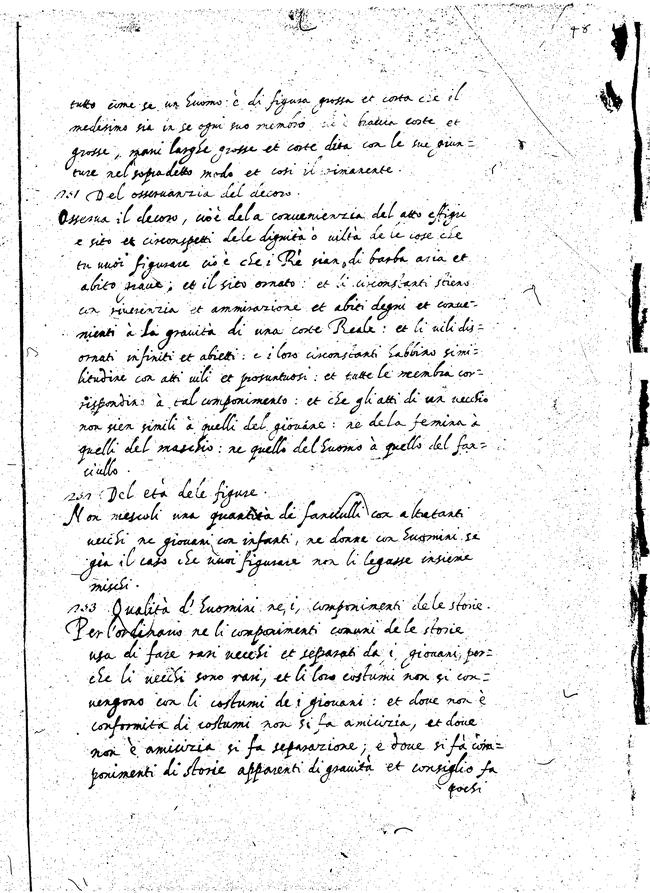 48
tutto come se un huomo è di figura grossa et corta che il
medesimo sia in se ogni suo membro cioè braccia corte et
grosse, mani larghe grosse et corte dita con le sue giun=
ture nel sopradetto modo et cosi il rimanente.
Del osservanzia del decoro.
Osserva il decoro, cioè dela convenienzia del atto effigie
e sito et circonspetti dele dignità ò viltà dele cose che
tu vuoi figurare cio è che i Rè sian, di barba aria et
abito grave, et il sito ornato: et li circonstanti stieno
con riverenzia et ammirazione et abiti degni et conve=
nienti à la gravità di una corte Reale: et li vili dis=
ornati infiniti et abietti: e i loro circonstanti habbino simi=
litudine con atti vili et prosuntuosi: et tutte le membra cor=
rispondino à tal componimento: et che gli atti di un vecchio
non sien simili à quelli del giovane: ne dela femina à
quelli del maschio: ne quello del huomo à quello del fan=
ciullo.
Del età dele figure.
Non mescoli una quantità de fanciulli con altretanti
vecchi ne giovani con infanti, ne donne con huomini se
gia il caso che vuoi figurare non li legasse insieme
mischi.
Qualità d'huomini ne, i, componimenti dele storie.
Per l'ordinario ne li componimenti comuni dele storie
usa di fare rari vecchi et separati da, i giovani, per=
che li vecchi sono rari, et li loro costumi non si con=
vengono con li costumi de, i giovani: et dove non è
conformita di costumi non si fa amicizia, et dove
non è amicizia si fa separazione; e dove si fà com=
ponimenti di storie apparenti di gravità et consiglio fa
pochi